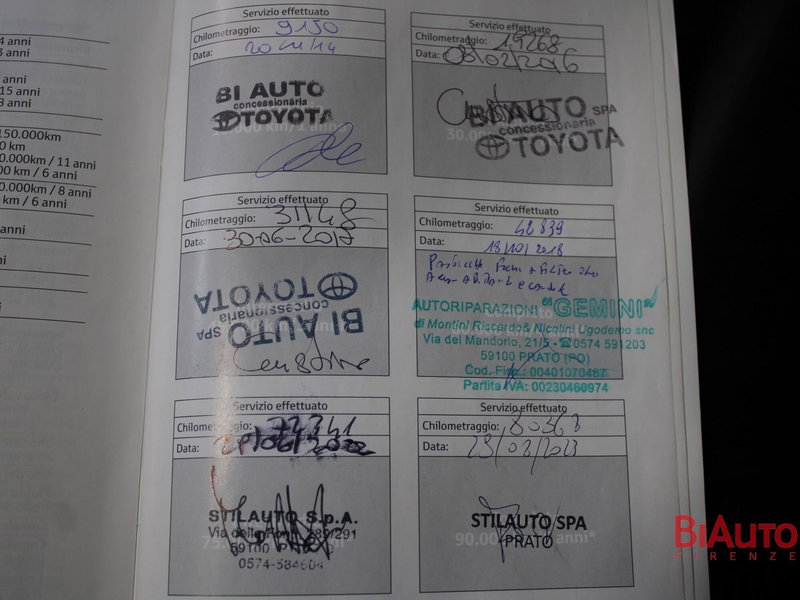 4 anni
3 anni
anni
15 anni
8 anni
150.000km
0 km
0.000km / 11 anni
00 km / 6 anni
0.000km / 8 anni
s / 6 anni
anni
Servizio effettuato
Chilometraggio: 9150
Data:
BI AUTO
concessionaria
TOYOTA
Servizio effettuato
Chilometraggio: 19268
Data: 08/02/2016
BI AUTO SPA
concessionaria
TOYOTA
30.000
Servizio effettuato
Chilometraggio: 31148
Data: 30-06-2017
BI AUTO SPA
concessionaria
TOYOTA
Servizio effettuato
Chilometraggio: 42839
Data: 18/10/2018
AUTORIPARAZIONI GEMINI
di Montini Riccardo & Nicolini Ugodemo snc
Via del Mandorlo, 21/5 - ☎ 0574 591203
59100 PRATO (PO)
Cod. Fisc.: 00401070487
Partita IVA: 00230460974
Servizio effettuato
Chilometraggio: 72341
Data:
STILAUTO S.p.A.
Via delle Fonti, 289/291
59100 PRATO
0574-584604
Servizio effettuato
Chilometraggio: 80368
Data:
STILAUTO SPA
PRATO
90.000 anni*
BIAUTO
FIRENZE